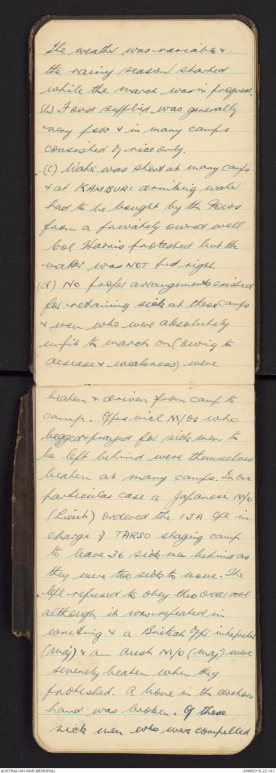 The weather was variable &
the rainy season started
while the march was in progress.
(b) Food supplied was generally
very poor & in many camps
consisted of rice only.
(c) Water was short at many camps
& at KANBURI drinking water
had to be bought by the POWs
from a privately owned well
Col Harris protested but the
matter was NOT put right.
(d) No proper arrangements existed
for retaining sick at these camps
& men who were absolutely
unfit to march on (owing to
disease & weakness) were
beaten & driven from camp to
camp. Offrs incl M/Os who
begged & prayed for sick men to
be left behind were themselves
beaten at many camps. In one
particular case a Japanese M/O
(Lieut) ordered the IJA Cpl in
charge of TARSO staging camp
to leave 36 sick men behind as
they were too sick to move. The
Cpl refused to obey this order
although it was repeated in
writing & a British Offr interpreter
(Maj) & an Aust M/O (Maj) were
severely beaten when they
protested. A bone in the doctors
hand was broken. Of those
sick men who were compelled
AUSTRALIAN WAR MEMORIAL